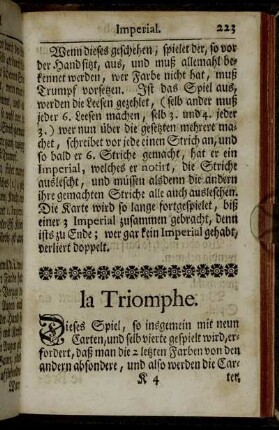 Imperial. 223
Wenn dieses geschehen, spielet der, so vor
der Hand sitzt, aus, und muß allemahl be-
kennet werden, wer Farbe nicht hat, muß
Trumpf vorsetzen. Ist das Spiel aus,
werden die Leesen gezehlet, (selb ander muß
jeder 6. Leesen machen, selb 3. und 4. jeder
3.) wer nun über die gesetzten mehrere ma-
chet, schreibet vor jede einen Strich an, und
so bald er 6. Striche gemacht, hat er ein
Imperial, welches er notirt, die Striche
auslescht, und müssen alsdenn die andern
ihre gemachten Striche alle auch ausleschen.
Die Karte wird so lange fortgespielet, biß
einer 3 Imperial zusammen gebracht, denn
ists zu Ende; wer gar kein Imperial gehabt,
verliert doppelt.
la Triomphe.
Dieses Spiel, so insgemein mit neun
Carten, und selb vierte gespielt wird, er-
fordert, daß man die 2 letzten Farben von den
andern absondere, und also werden die Car-
K 4 ten,